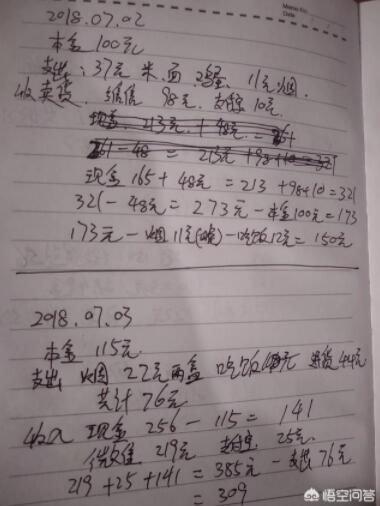 2018.07.02
本金100元
支出：37元 米.面.鸡蛋. 11元烟.
收卖货. 微信 98元. 支付宝10元.
现金 213元 + 48元 = 261
261 - 48 = 213元 + 98 + 10 = 321
现金 165 + 48元 = 213 + 98 + 10 = 321
321 - 48元 = 273元 - 本金100元 = 173
173元 - 烟11元 - 吃饭12元 = 150元
2018.07.03
本金 115元.
支出 烟 22元两盒 吃饭 元 进货44元
共计76元
收入 现金 256 - 115 = 141
微信 219元 支付宝 25元.
219 + 25 + 141 = 385元 - 支出76元
= 309
悟空问答